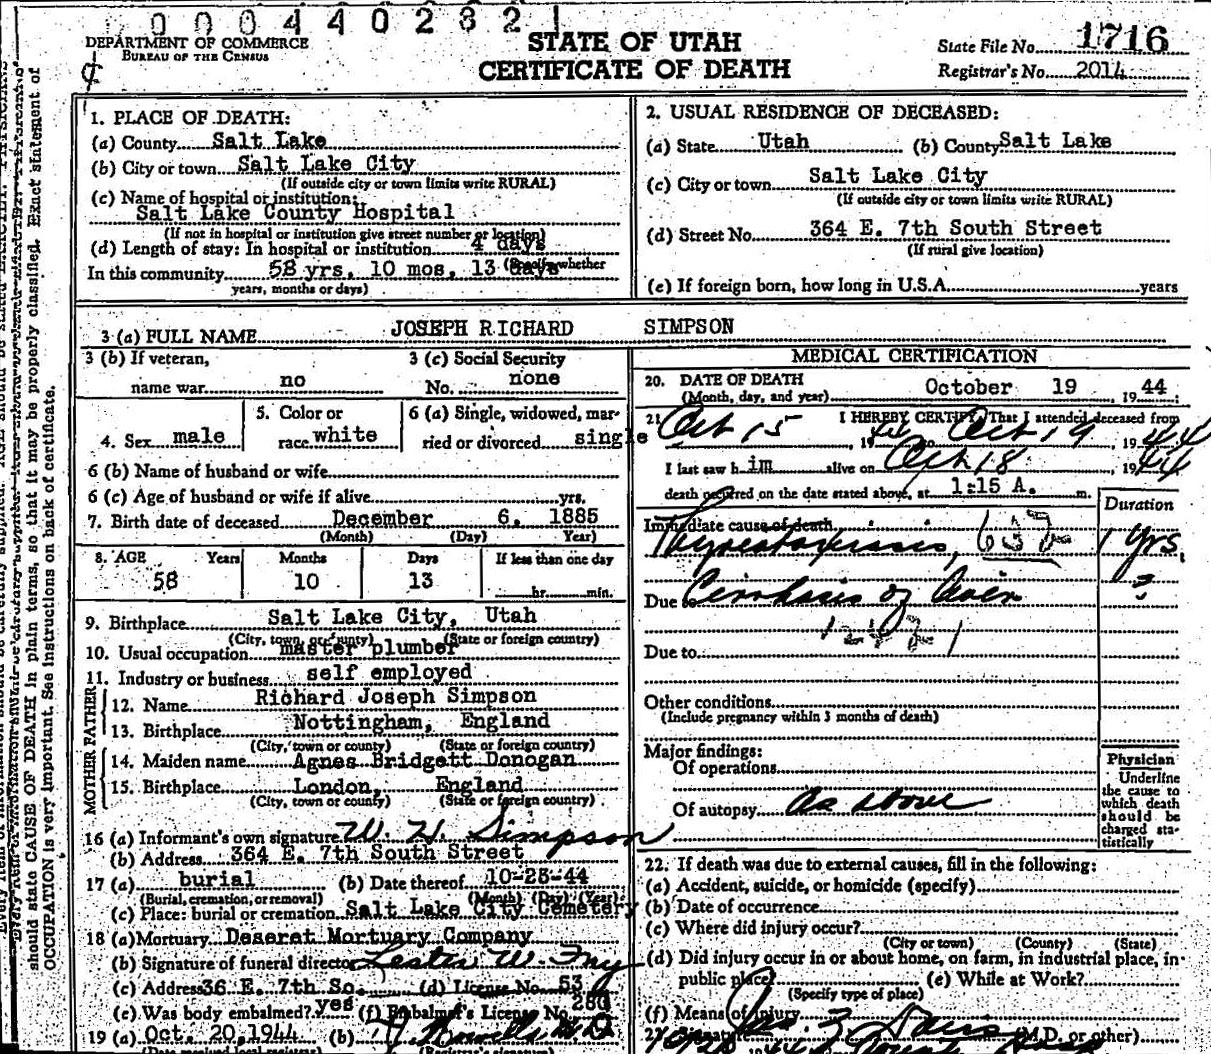 000440282
DEPARTMENT OF COMMERCE
BUREAU OF THE CENSUS
STATE OF UTAH
CERTIFICATE OF DEATH
State File No. 1716
Registrar's No. 2014
1. PLACE OF DEATH:
(a) County Salt Lake
(b) City or town Salt Lake City
(If outside city or town limits write RURAL)
(c) Name of hospital or institution:
Salt Lake County Hospital
(If not in hospital or institution give street number or location)
(d) Length of stay: In hospital or institution 4 days
In this community 58 yrs. 10 mos. 13 days (Specify whether
years, months or days)
2. USUAL RESIDENCE OF DECEASED:
(a) State Utah (b) County Salt Lake
(c) City or town Salt Lake City
(If outside city or town limits write RURAL)
(d) Street No. 364 E. 7th South Street
(If rural give location)
(e) If foreign born, how long in U.S.A. years
3 (a) FULL NAME JOSEPH RICHARD SIMPSON
3 (b) If veteran,
name war no
3 (c) Social Security
No. none
4. Sex male
5. Color or
race white
6 (a) Single, widowed, mar-
ried or divorced single
6 (b) Name of husband or wife
6 (c) Age of husband or wife if alive yrs.
7. Birth date of deceased December 6. 1885
(Month) (Day) Year)
8. AGE Years Months Days If less than one day
58 10 13 hr. min.
9. Birthplace Salt Lake City, Utah
(City, town, or county) (State or foreign country)
10. Usual occupation master plumber
11. Industry or business self employed
FATHER
12. Name Richard Joseph Simpson
13. Birthplace Nottingham, England
(City, town or county) (State or foreign country)
MOTHER
14. Maiden name Agnes Bridgett Donogan
15. Birthplace London, England
(City, town or county) (State or foreign country)
16 (a) Informant's own signature W. H. Simpson
(b) Address 364 E. 7th South Street
17 (a) burial (b) Date thereof 10-23-44
(Burial, cremation, or removal) (Month) (Day) (Year)
(c) Place: burial or cremation Salt Lake City Cemetery
18 (a) Mortuary Deseret Mortuary Company
(b) Signature of funeral director Lester W. Fry
(c) Address 36 E. 7th So. (d) License No. 53
(e) Was body embalmed? yes (f) Embalmer's License No. 280
19 (a) Oct. 20, 1944 (b)
(Date received local registrar) (Registrar's signature)
MEDICAL CERTIFICATION
20. DATE OF DEATH
(Month, day, and year) October 19, 1944;
21. I HEREBY CERTIFY, That I attended deceased from
Oct 15, 1944 to Oct 19, 1944
I last saw him alive on Oct 18, 1944
death occurred on the date stated above, at 1:15 A. m.
Duration
Immediate cause of death
Thyrotoxicosis, 63b 1 yrs.
Due to Cirrhosis of liver ?
Due to
Other conditions
(Include pregnancy within 3 months of death)
Major findings:
Of operations
Of autopsy As above
Physician
Underline
the cause to
which death
should be
charged sta-
tistically
22. If death was due to external causes, fill in the following:
(a) Accident, suicide, or homicide (specify)
(b) Date of occurrence
(c) Where did injury occur?
(City or town) (County) (State)
(d) Did injury occur in or about home, on farm, in industrial place, in
public place? (e) While at Work?
(Specify type of place)
(f) Means of injury
(M.D. or other)
should state CAUSE OF DEATH in plain terms, so that it may be properly classified. Exact statement of
OCCUPATION is very important. See instructions on back of certificate.